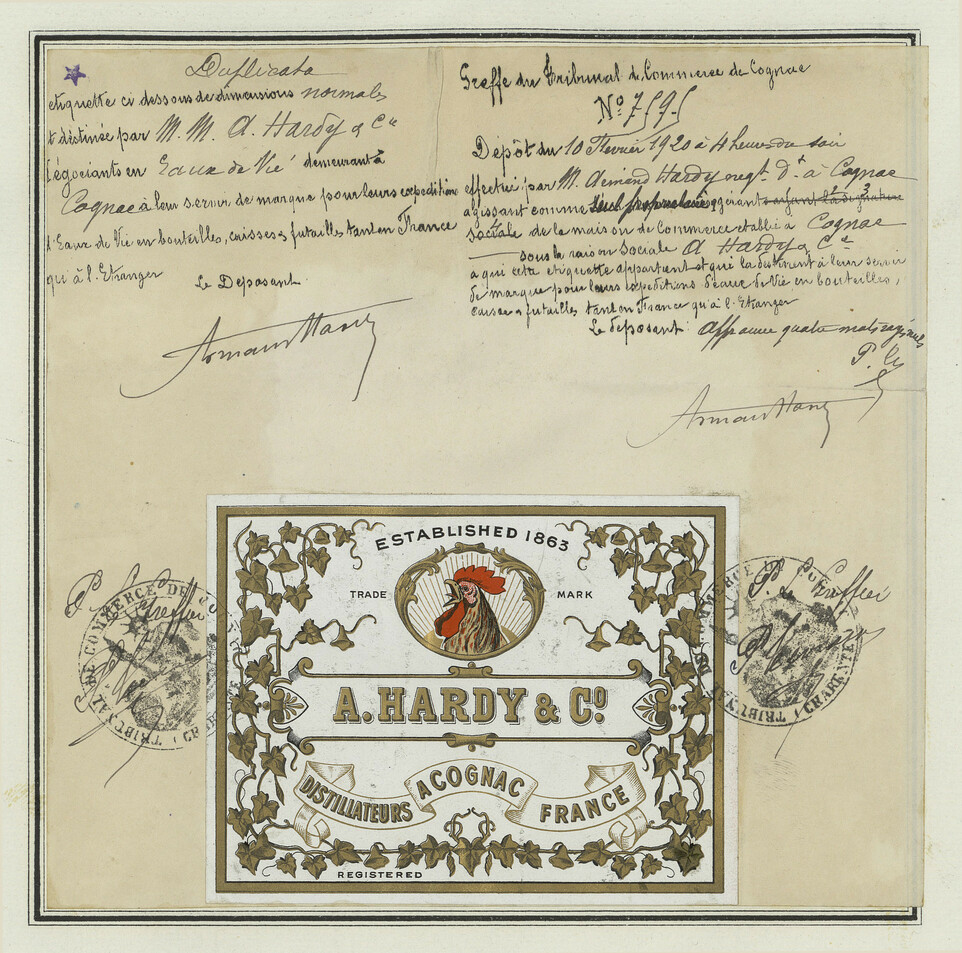 Duplicata
etiquette ci dessous de dimensions normales
et destinée par M. M. A. Hardy & Cie
Négociants en Eaux de Vie demeurant à
Cognac à leur servir de marque pour leurs expeditions
d'Eaux de Vie en bouteilles, caisses & futailles tant en France
qu'à l'Etranger
Le Deposant
Armand Hardy
Greffe du Tribunal de Commerce de Cognac
Nº 7595
Dépôt du 10 Février 1920 à 4 heures du soir
effectué par M. Armand Hardy negt. Dt. à Cognac
agissant comme seul propriétaire, gérant ayant la signature
sociale de la maison de Commerce établie à Cognac
sous la raison Sociale A Hardy & Cie
à qui cette etiquette appartient et qui la destinent à leur servir
de marque pour leurs expeditions d'eaux de Vie en bouteilles,
caisses & futailles tant en France qu'à l'Etranger
Le deposant: quatre mots
Armand Hardy
P. Le Greffier
P. Le Greffier
TRIBUNAL DE COMMERCE DE COGNAC
TRIBUNAL DE COMMERCE DE COGNAC
ESTABLISHED 1863
TRADE MARK
A. HARDY & Cº.
DISTILLATEURS A COGNAC FRANCE
REGISTERED